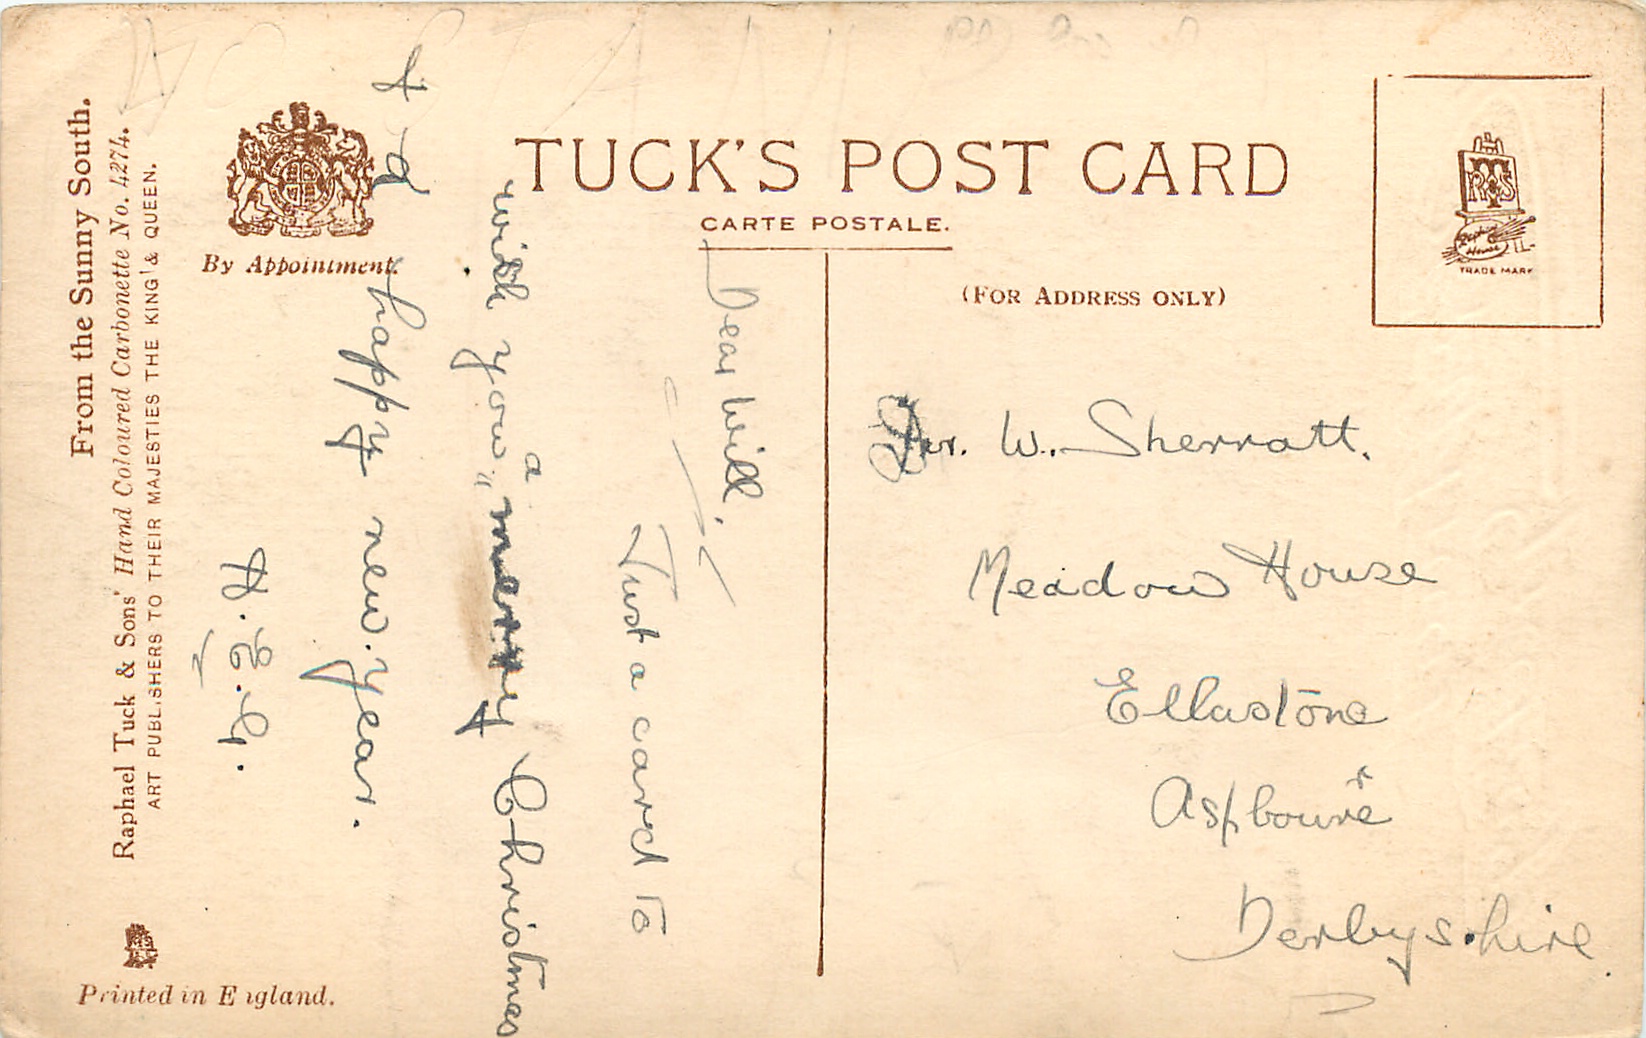 TUCK'S POST CARD
CARTE POSTALE.
(FOR ADDRESS ONLY)
TRADE MARK
By Appointment.
From the Sunny South.
Raphael Tuck & Sons' Hand Coloured Carbonette No. 4274.
ART PUBLISHERS TO THEIR MAJESTIES THE KING & QUEEN.
Printed in England.
Dear Will,
Just a card to
wish you a merry Christmas
& a
happy new year.
W. Sherratt.
Meadow House
Ellastone
Ashbourne
Derbyshire